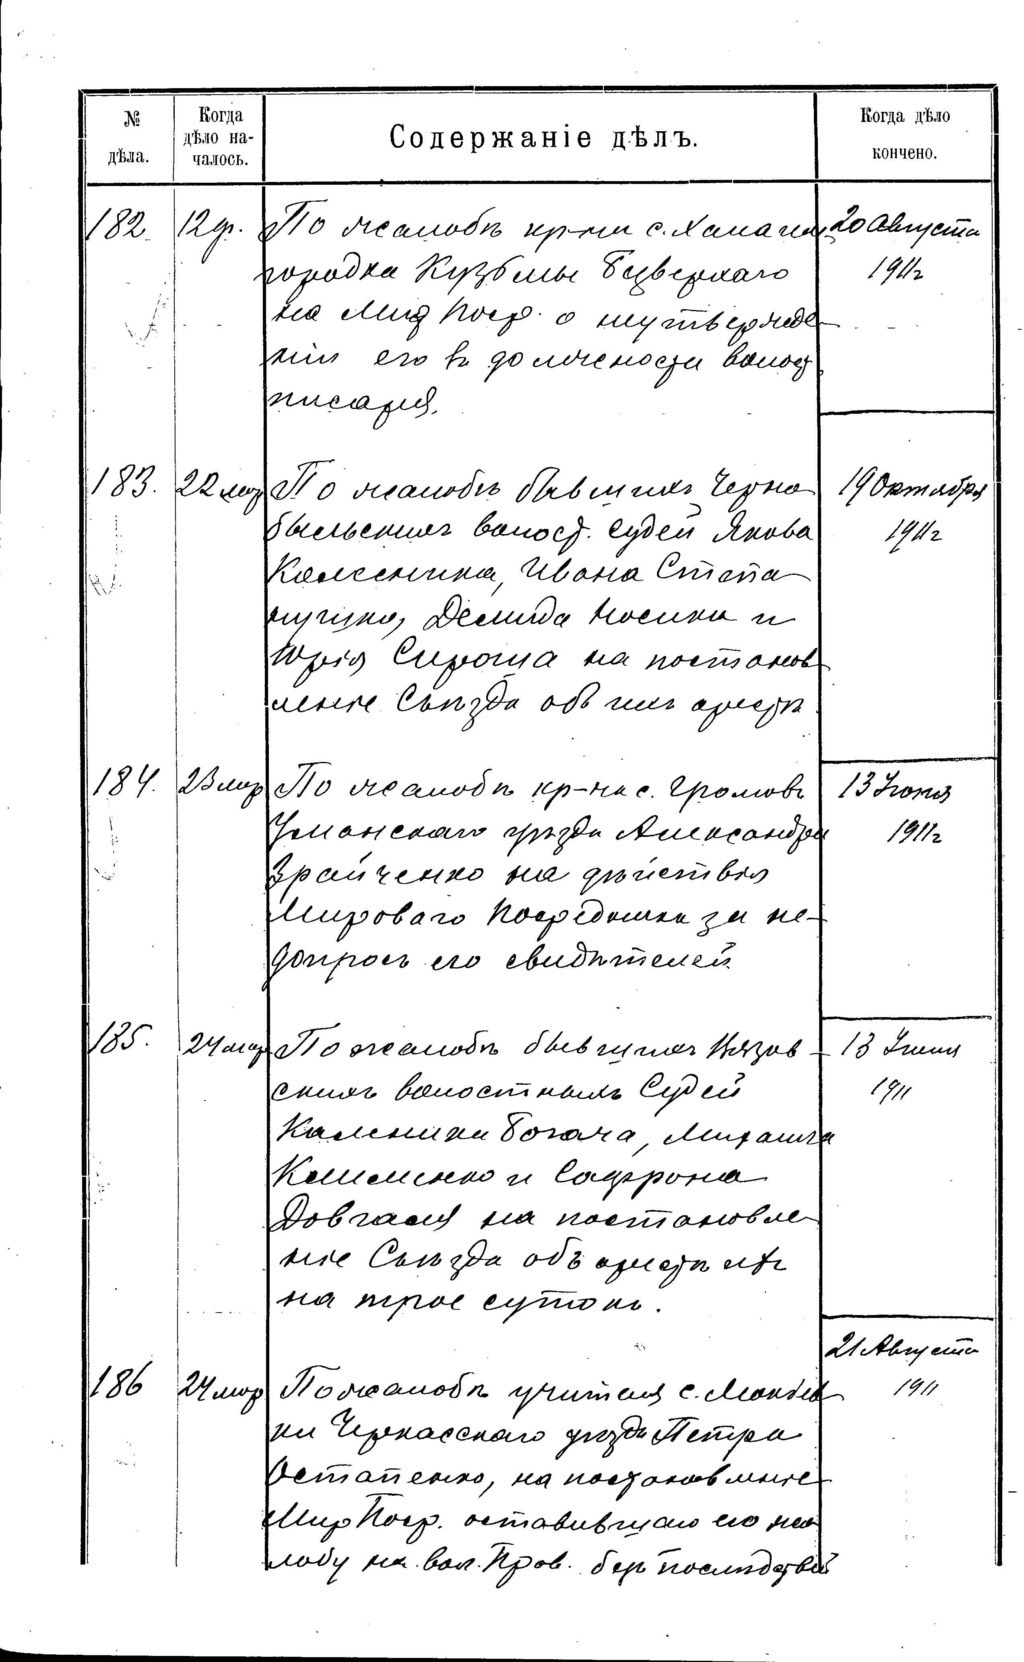 № дѣла.
Когда дѣло на-чалось.
Содержаніе дѣлъ.
Когда дѣло кончено.
182. 12 ф. По жалобѣ кр-на с. 20 Августа
городка Кузьмы 1911 г
на Мир Поср. о неутвержде-
ніи его въ должности волост
писаря.
183. 22 мар По жалобѣ бывшихъ Черно 19 Октября
быльскихъ волост. судей Якова 1911 г
Каленика, Ивана Степа
Демида Носика и
Юрія Сироша на постанов
леніе Съѣзда объ ихъ арестѣ
184. 23 мар По жалобѣ кр-на с. Громовъ 13 Іюня
Уманскаго уѣзда Александра 1911 г
Зрайченко на дѣйствія
Мироваго Посредника за не-
допросъ его свидѣтелей
185. 24 мар По жалобѣ бывшихъ Вязов- 13 Іюня
скихъ волостныхъ Судей 1911
Каленика Богача, Михаила
Клименко и Сафрона
Довгаля на постановле-
ніе Съѣзда объ арестѣ ихъ
на трое сутокъ.
21 Августа
186 24 мар По жалобѣ учителя с. 1911
ки Черкасскаго уѣзда Петра
Остапенко, на постановленіе
Мир Поср. оставившаго его жа
лобу на вол. Прав. безъ послѣдствій